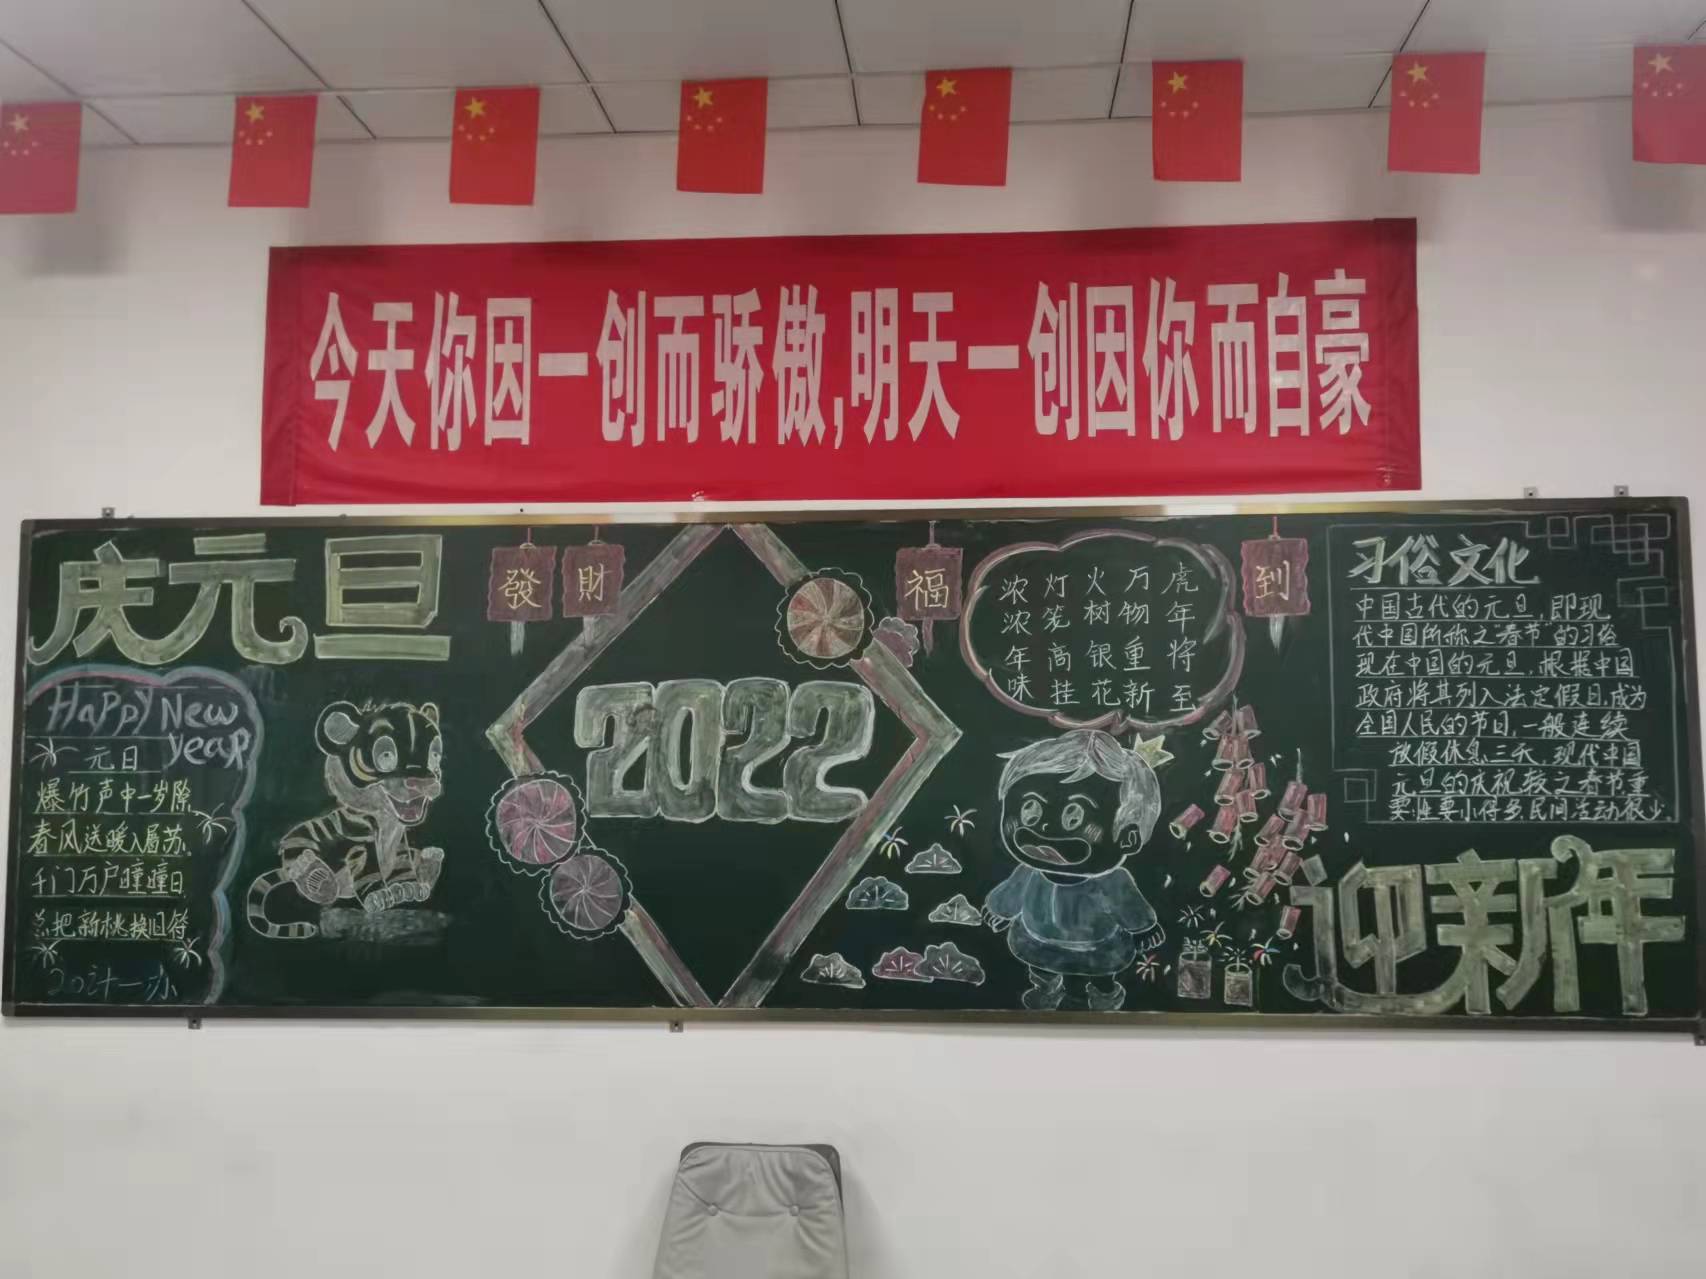 今天你因一创而骄傲,明天一创因你而自豪
庆元旦
發
財
福
到
Happy New
year
元日
爆竹声中一岁除
春风送暖入屠苏
千门万户曈曈日
总把新桃换旧符
2022
虎年将至
万物重新
火树银花
灯笼高挂
浓浓年味
习俗文化
中国古代的元旦,即现
代中国所称之"春节"的习俗
现在中国的元旦,根据中国
政府将其列入法定假日,成为
全国人民的节日,一般连续
放假休息三天,现代中国
元旦的庆祝较之春节重
要性要小得多,民间活动很少.
迎新年